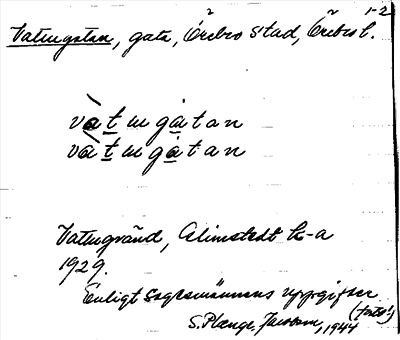 1-2
Vatugatan, gata, Örebro stad, Örebro l.
vàtugàtan
vàtugàtan
Vatugränd, Almstedt k-a
1929.
Enligt sagesmännens uppgifter
(forts!)
S. Plænge Jacobson, 1944